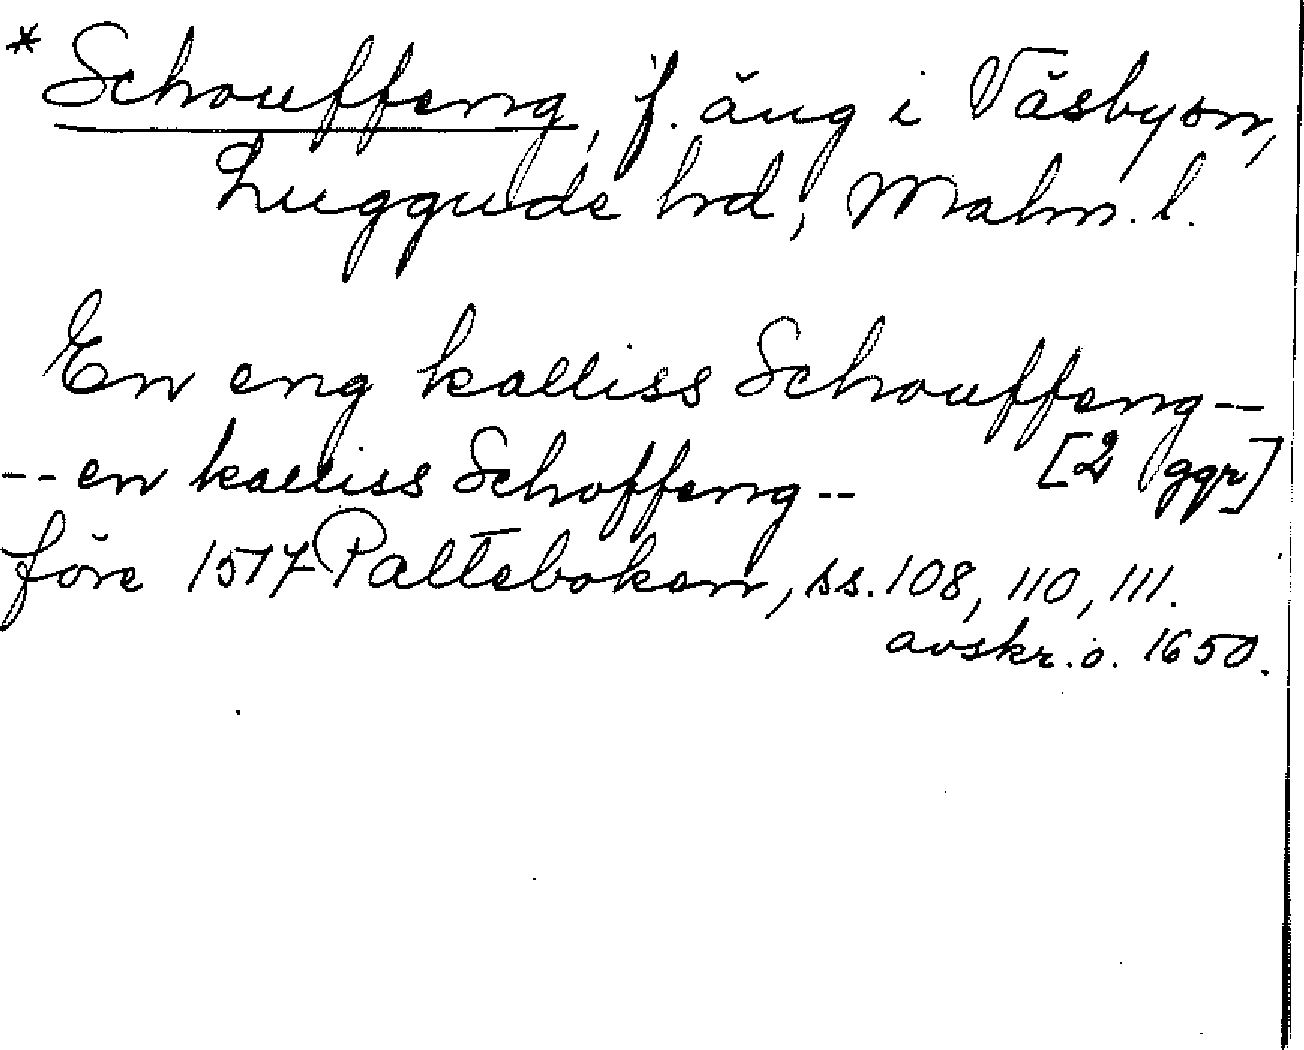 * Schouffeng, f. äng i Väsby sn,
Luggude hrd, Malm. l.
En eng kalliss Schouffeng--
--en kalliss Schoffeng-- [2 ggr]
före 1517 Pattebokem, ss. 108, 110, 111.
avskr. o. 1650.